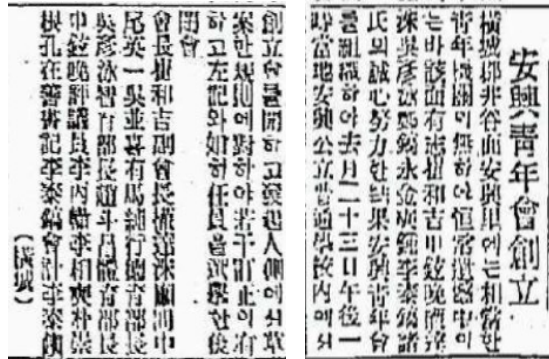 安興靑年會創立
橫城郡井谷面安興里에는相當한
靑年機關이無하야恒常遺憾中이
든바該面有志崔和吉申鉉晩
深吳彦泳 永金 李泰鎬諸
氏의誠心努力한結果安興靑年會
를組織하야去月二十三日午後一
時當地安興公立普通學校內에서
創立會를開하고發起人側에서草
案한規則에對하야若干訂正이有
하고左記와如히任員을選擧한後
閉會
會長崔和吉副會長權達深顧問中
尾英一吳並喜有馬純行德育部長
吳彦泳智育部長趙斗昌體育部長
申鉉晩評議員李丙 李相奭朴景
根孔在善書記李泰鎬會計李泰
(橫城)